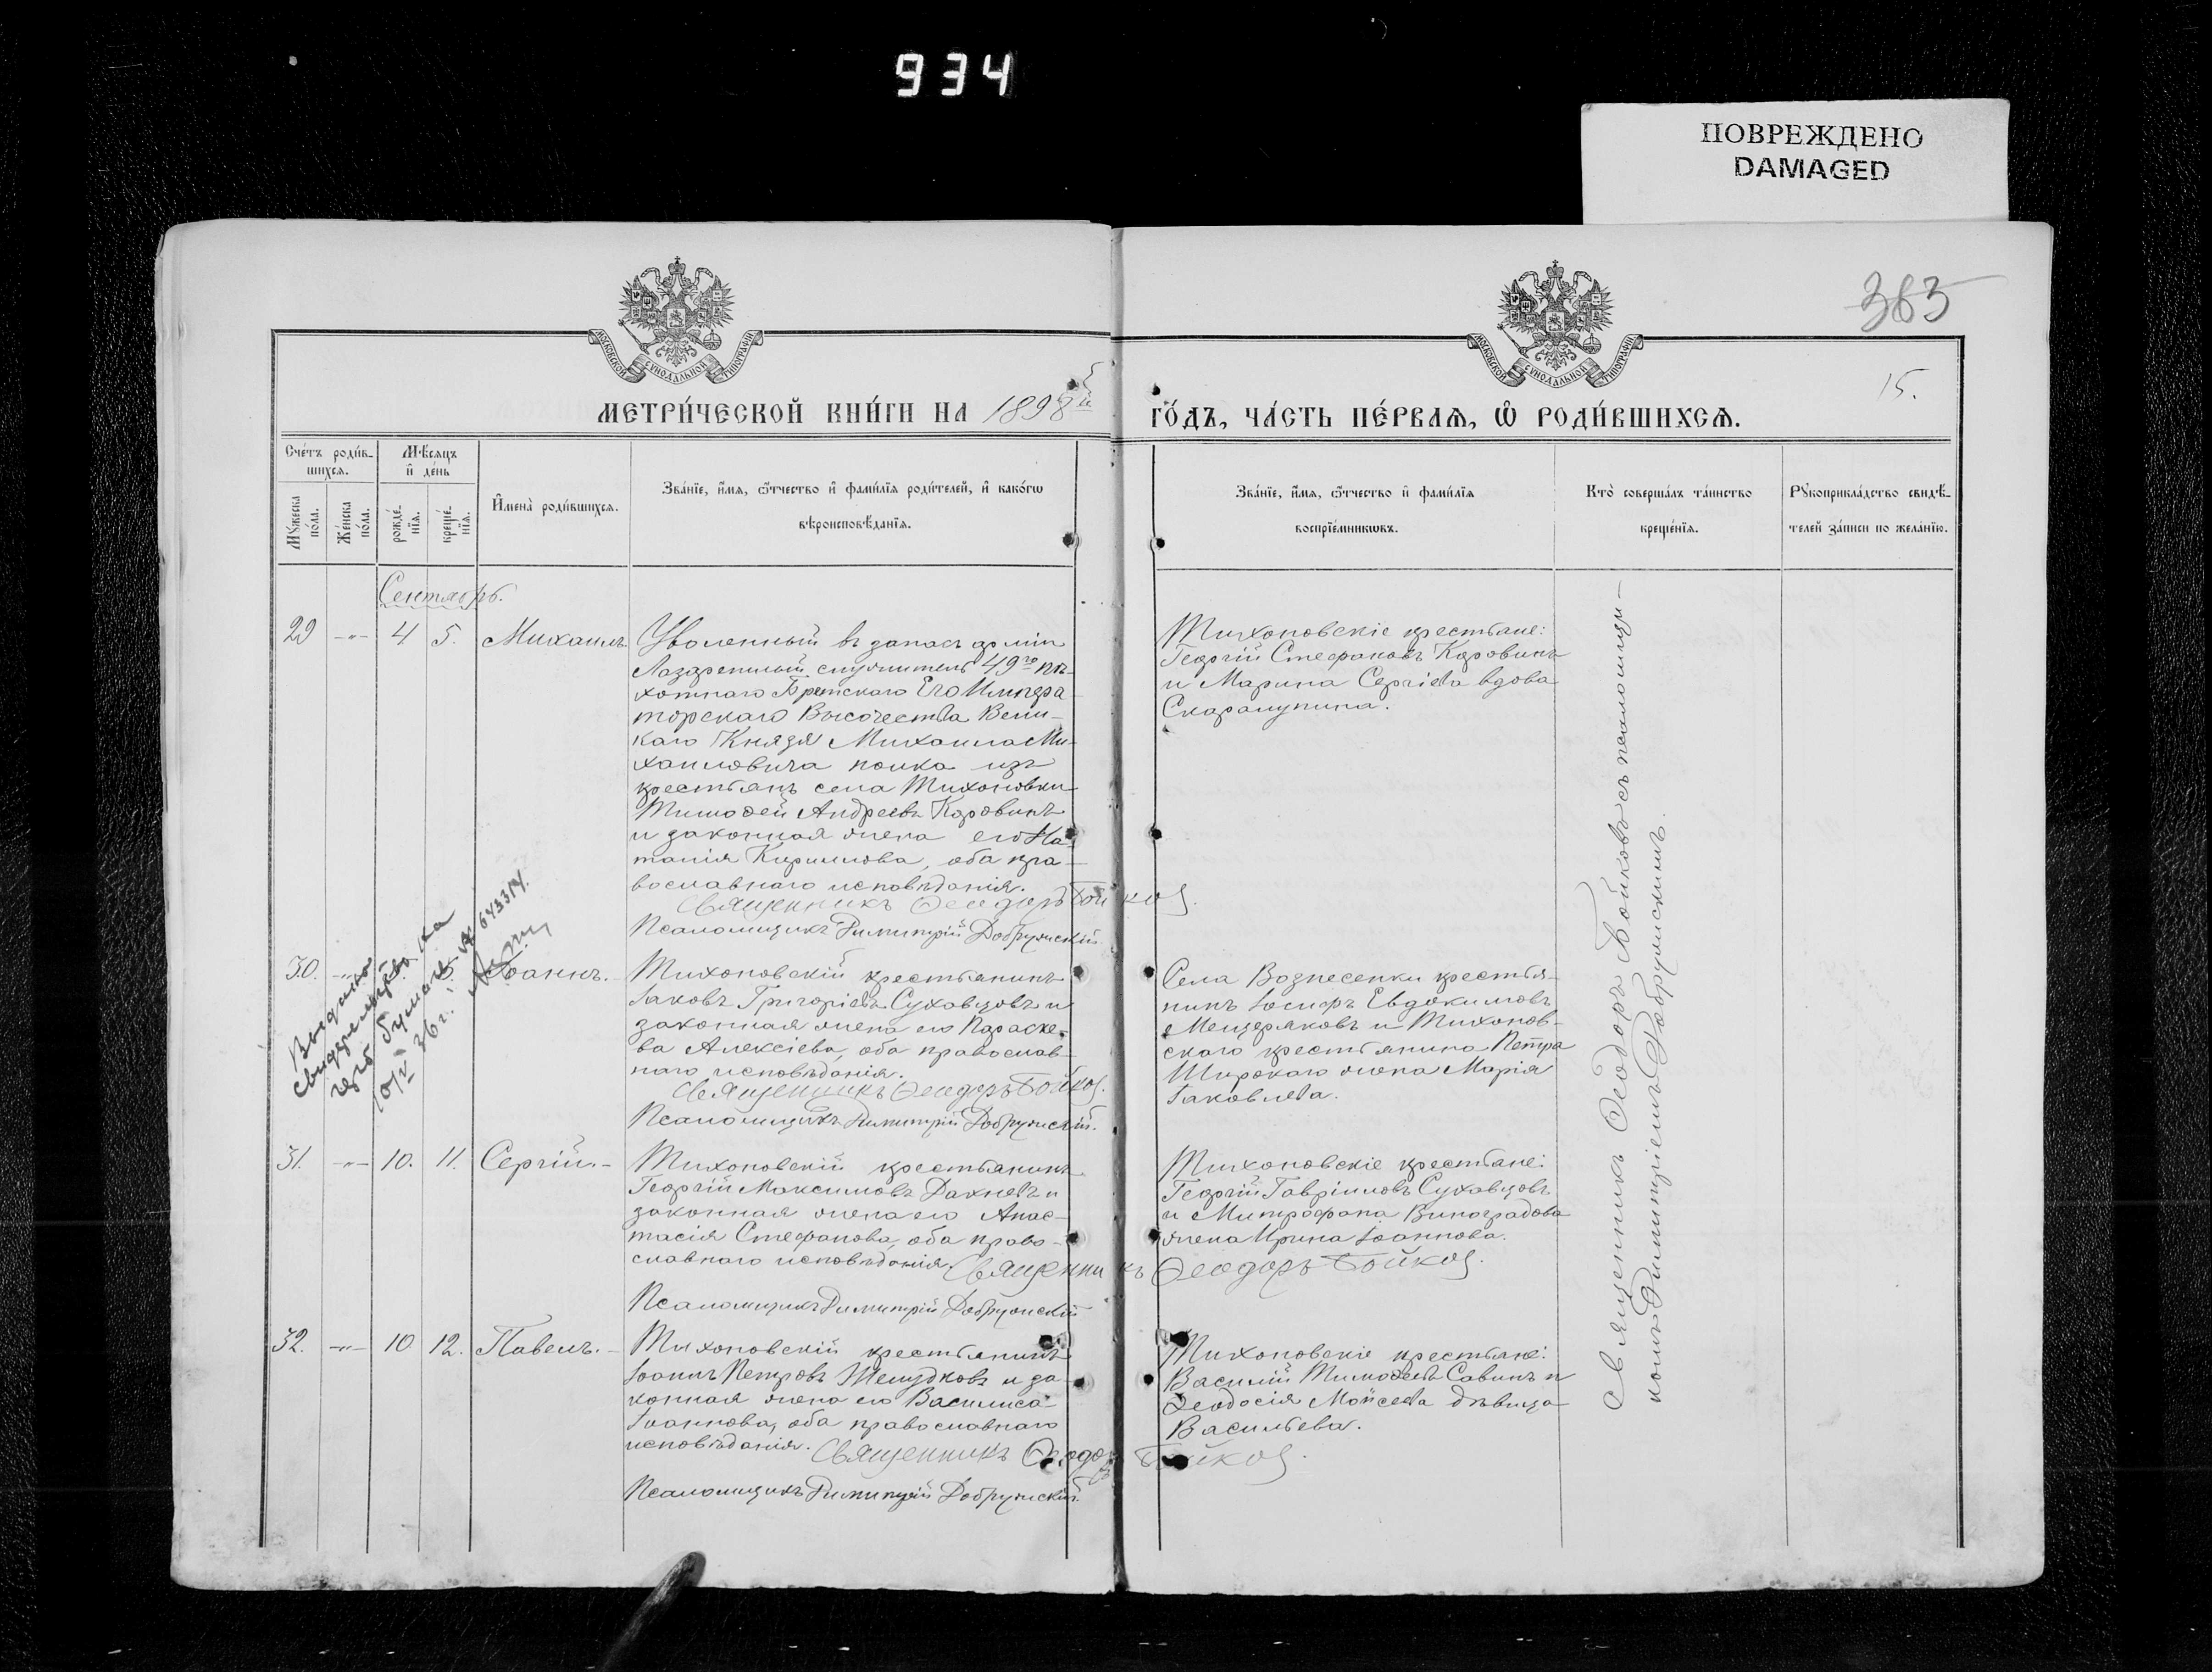 934
ПОВРЕЖДЕНО
DAMAGED
363
15.
МОСКОВСКОЙ СѴНОДАЛЬНОЙ ТИПОГРАФІИ
МОСКОВСКОЙ СѴНОДАЛЬНОЙ ТИПОГРАФІИ
МЕТРИ́ЧЕСКОЙ КНИ́ГИ НА 1898й ГО́ДЪ, ЧА́СТЬ ПЕ́РВАЯ, Ѡ҆ РОДИ́ВШИХСЯ.
Сче́тъ роди́в-
шихся.
Мѣ́сяцъ
и҆ де́нь
Мꙋ́жеска
по́ла.
Же́нска
по́ла.
рожде́-
нїя.
креще́-
нїя.
И҆мена̀ роди́вшихся.
Зва́нїе, и҆́мя, ѻ҆́тчество и҆ фами́лїя роди́телей, и҆ како́гѡ
вѣроисповѣ́данїя.
Зва́нїе, и҆́мя, ѻ҆́тчество и҆ фами́лїя
воспрїе́мникѡвъ.
Кто̀ соверша́лъ та́инство
креще́нїя.
Рꙋкоприкла́дство свидѣ́-
телей за́писи по жела́нїю.
Сентябрь.
29 -"- 4 5. Михаилъ
Уволенный въ запасъ арміи
Лазаретный служитель 49го пѣ-
хотнаго Брестскаго Его Импера
торскаго Высочества Вели-
каго Князя Михаила Ми-
хаиловича полка изъ
крестьянъ села Тихоновки
Тимофей Андреевъ Каровинъ
и законная жена его На-
талія Кириллова, оба пра-
вославнаго исповѣданія.
Священникъ Ѳеодоръ Бойков.
Псаломщикъ Димитрій Добружскій.
Тихоновскіе крестьяне:
Георгій Стефановъ Каровинъ
и Марина Сергіева вдова
30. -"- Іоаннъ.
Тихоновскій крестьянинъ
Іаковъ Григоріевъ Сухавцовъ и
законная жена его Параске-
ва Алексіева, оба православ-
наго исповѣданія.
Священникъ Ѳеодоръ Бойков.
Псаломщикъ Димитрій Добружскій.
Села Вознесенки крестья-
нинъ Іосифъ Евдокимовъ
Мещеряковъ и Тихонов-
скаго крестьянина Петра
Широкаго жена Марія
Іаковлева.
Выдано
свидетельство на
герб бумаге № 643314.
10/VI 36 г.
31. -"- 10. 11. Сергій.-
Тихоновскій крестьянинъ
Георгій Максимовъ Дахневъ и
законная жена его Анас-
тасія Стефанова, оба право-
славнаго исповѣданія. Священникъ Ѳеодоръ Бойков.
Псаломщикъ Димитрій Добружскій
Тихоновскіе крестьяне:
Георгій Гавріиловъ Сухавцовъ
и Митрофана Виноградова
жена Ирина Іоаннова.
32. -"- 10 12. Павелъ.-
Тихоновскій крестьянинъ
Іоаннъ Петровъ Желудковъ и за-
конная жена его Василиса
Іоаннова, оба православнаго
исповѣданія. Священникъ Ѳеодоръ Бойков.
Псаломщикъ Димитрій Добружскій.
Тихоновскіе крестьяне:
Василій Тимофеевъ Савинъ и
Ѳеодосія Моѵсеева дѣвица
Васильева.
Священникъ Ѳеодоръ Бойковъ съ псаломщи-
комъ Димитріемъ Добружскимъ.